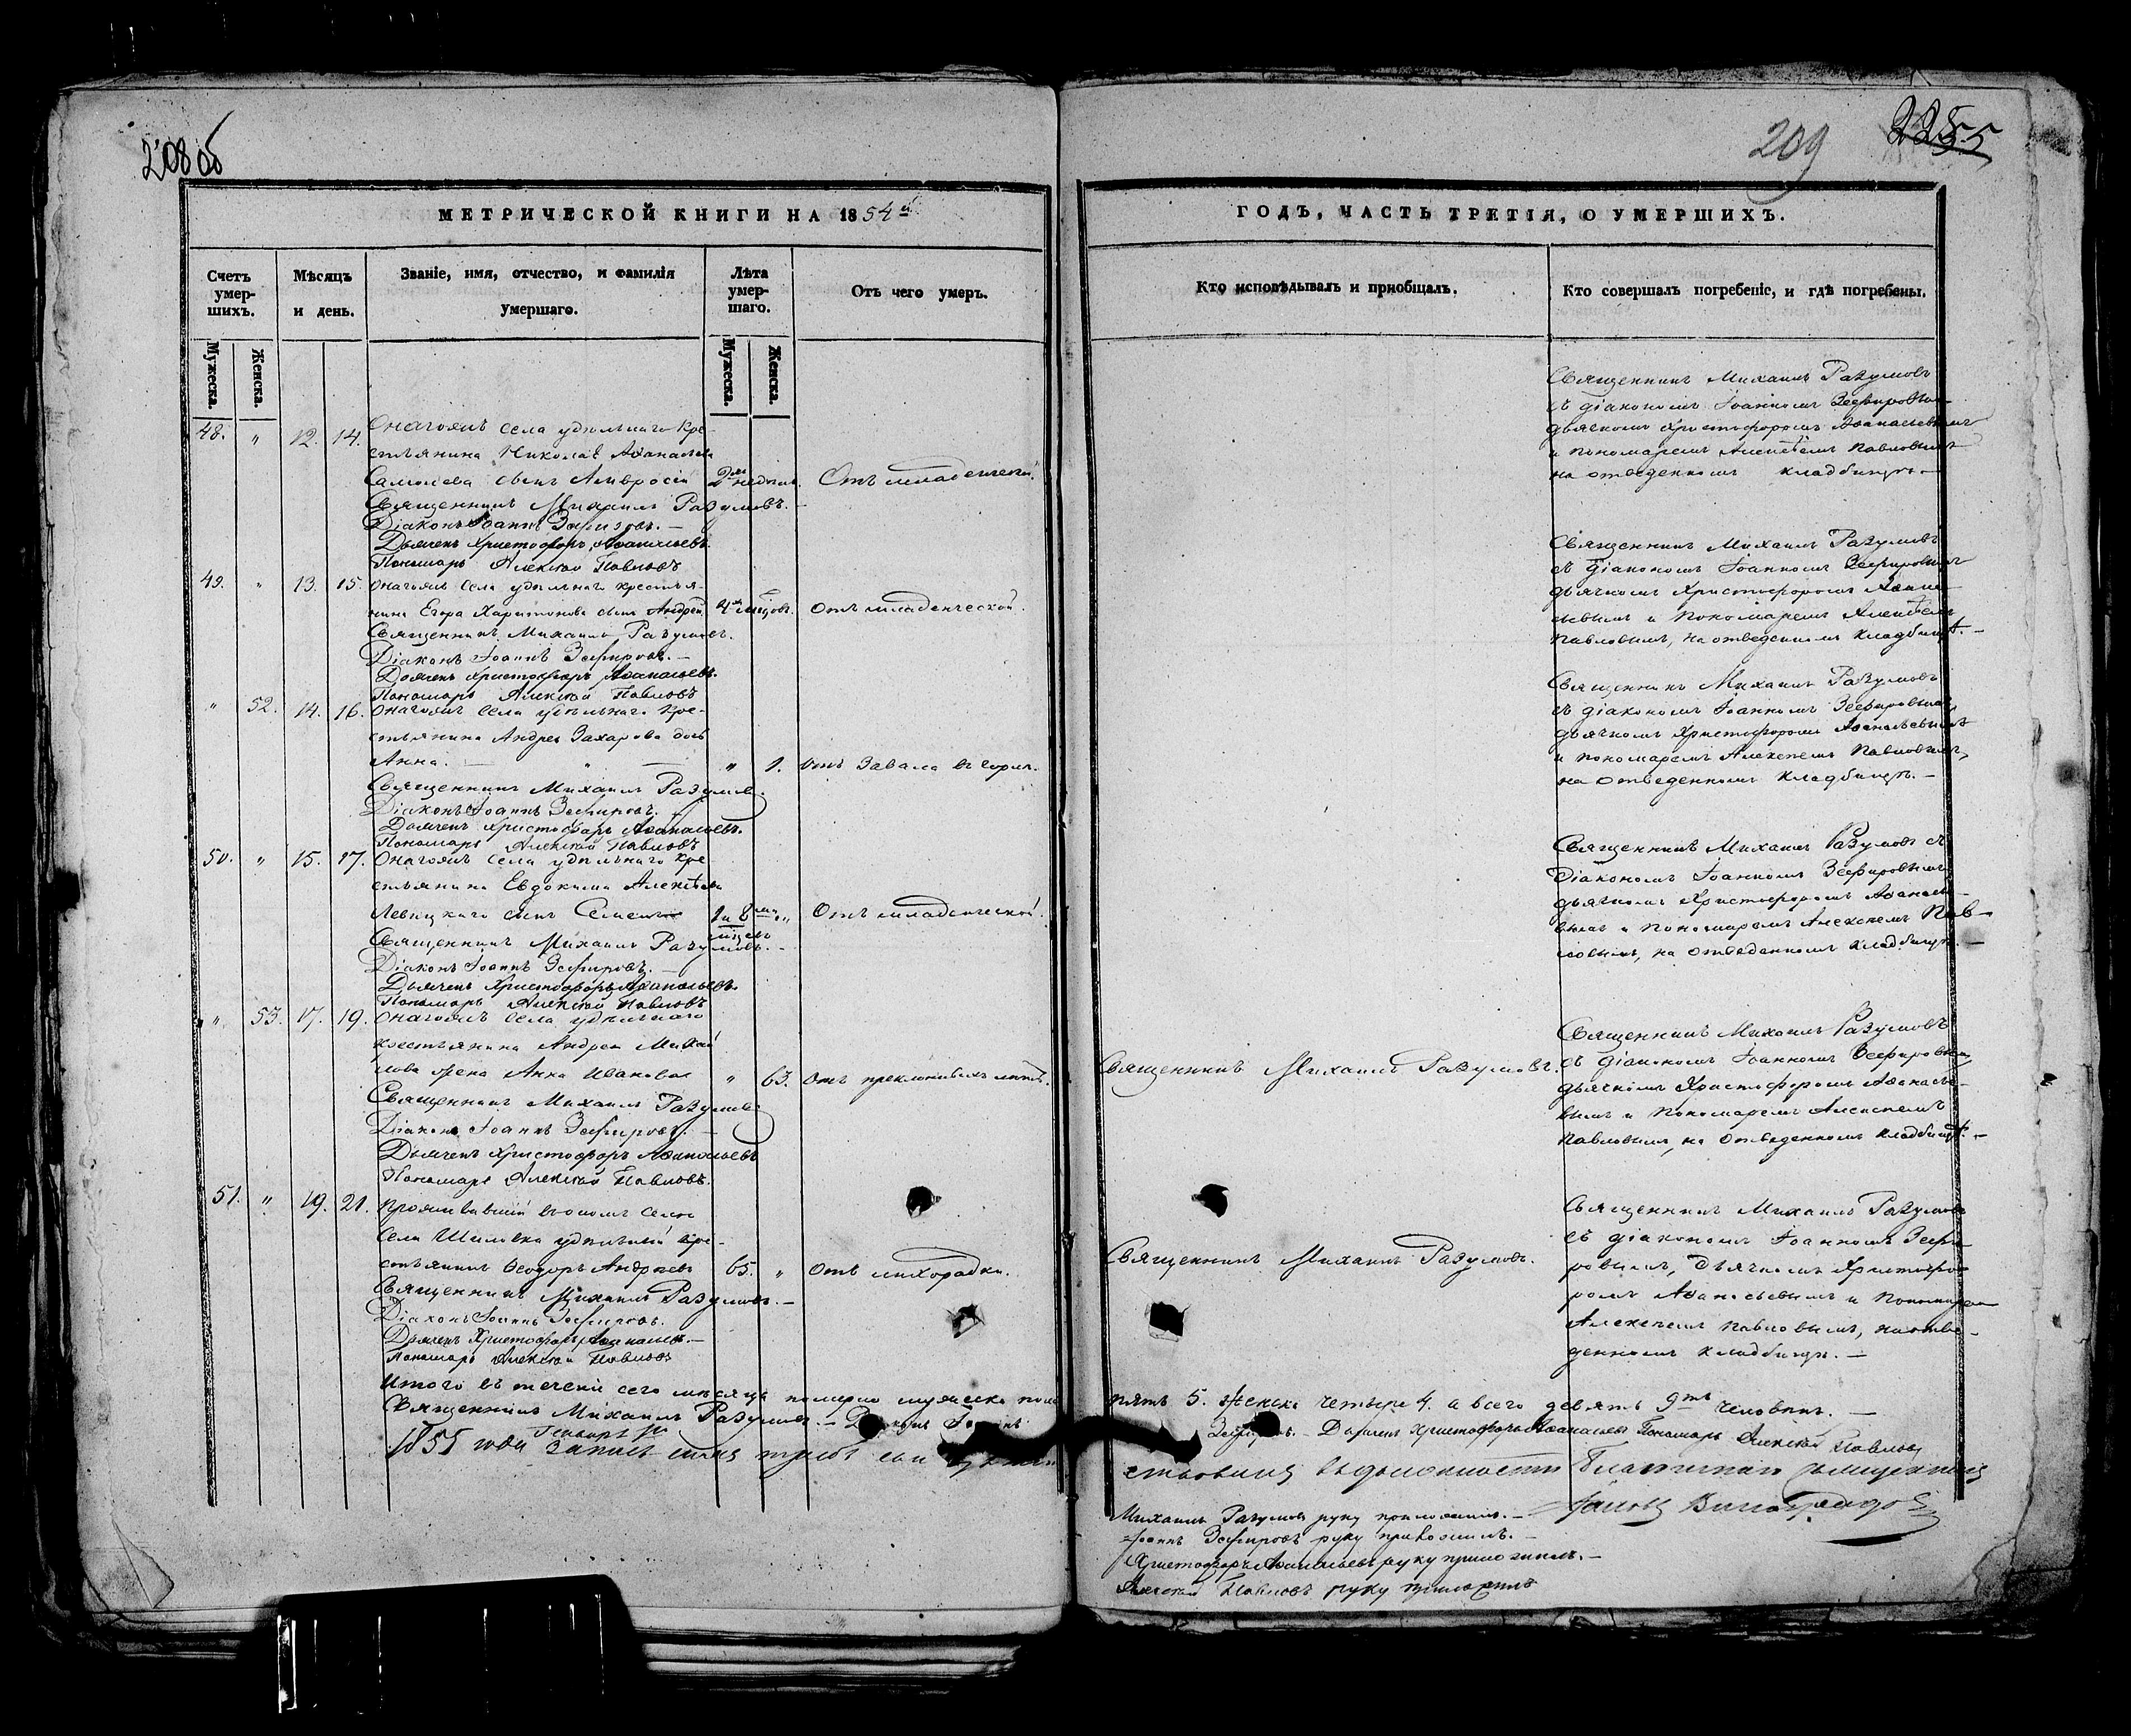 208 об
209
МЕТРИЧЕСКОЙ КНИГИ НА 1854й
ГОДЪ, ЧАСТЬ ТРЕТІЯ, О УМЕРШИХЪ.
Счетъ умер-
шихъ.
Мѣсяцъ
и день.
Званіе, имя, отчество, и фамилія
умершаго.
Лѣта
умер-
шаго.
Отъ чего умеръ.
Кто исповѣдывалъ и пріобщалъ.
Кто совершалъ погребеніе, и гдѣ погребены.
Мужеска.
Женска.
Мужеска.
Женска.
48. " 12. 14. Онагожъ села удѣльнаго кре-
стьянина Николая Аѳанасьева
сынъ Амвросій 2хъ недѣль. Отъ младенческой.
Священникъ Михаилъ Разумовъ.
Діаконъ Іоаннъ Зефировъ.
Дьячекъ Христофоръ Аѳанасьевъ.
Пономарь Алексѣй Павловъ
Священникъ Михаилъ Разумовъ
съ діакономъ Іоанномъ Зефировымъ
дьячкомъ Христофоромъ Аѳанасьевымъ
и пономаремъ Алексѣемъ Павловымъ
на отведенномъ кладбищѣ.
49. " 13. 15. Онагожъ села удѣльнаго крестья-
нина Егора Харитонова сынъ Андрей 4хъ мѣсяцовъ. Отъ младенческой.
Священникъ Михаилъ Разумовъ.
Діаконъ Іоаннъ Зефировъ.
Дьячекъ Христофоръ Аѳанасьевъ.
Пономарь Алексѣй Павловъ
Священникъ Михаилъ Разумовъ
съ діакономъ Іоанномъ Зефировымъ
дьячкомъ Христофоромъ Аѳана-
сьевымъ и пономаремъ Алексѣемъ
Павловымъ, на отведенномъ кладбищѣ.
" 52. 14. 16. Онагожъ села удѣльнаго кре-
стьянина Андрея Захарова дочь
Анна. " 1. отъ завала въ горлѣ.
Священникъ Михаилъ Разумовъ.
Діаконъ Іоаннъ Зефировъ.
Дьячекъ Христофоръ Аѳанасьевъ.
Пономарь Алексѣй Павловъ
Священникъ Михаилъ Разумовъ
съ діакономъ Іоанномъ Зефировымъ,
дьячкомъ Христофоромъ Аѳанасьевымъ
и пономаремъ Алексѣемъ Павловымъ,
на отведенномъ кладбищѣ.
50. " 15. 17. Онагожъ села удѣльнаго кре-
стьянина Евдокима Алексѣева
Левицкаго сынъ 1 и 8 " Отъ младенческой.
Священникъ Михаилъ Разумовъ.
Діаконъ Іоаннъ Зефировъ.
Дьячекъ Христофоръ Аѳанасьевъ.
Пономарь Алексѣй Павловъ
Священникъ Михаилъ Разумовъ съ
діакономъ Іоанномъ Зефировымъ,
дьячкомъ Христофоромъ Аѳанасье-
вымъ и пономаремъ Алексѣемъ Пав-
ловымъ, на отведенномъ кладбищѣ.
" 53. 17. 19. Онагожъ села удѣльнаго
крестьянина Андрея Михай-
лова жена Анна Иванова " 63. Отъ преклонныхъ лѣтъ.
Священникъ Михаилъ Разумовъ
Діаконъ Іоаннъ Зефировъ.
Дьячекъ Христофоръ Аѳанасьевъ
Пономарь Алексѣй Павловъ.
Священникъ Михаилъ Разумовъ.
Священникъ Михаилъ Разумовъ
съ діакономъ Іоанномъ Зефировымъ,
дьячкомъ Христофоромъ Аѳанасье-
вымъ и пономаремъ Алексѣемъ
Павловымъ, на отведенномъ кладбищѣ.
51. " 19. 21. Проживавшій въ ономъ селѣ
села Шиловки удѣльный кре-
стьянинъ Ѳеодоръ Андреевъ 65. " Отъ лихорадки.
Священникъ Михаилъ Разумовъ.
Діаконъ Іоаннъ Зефировъ.
Дьячекъ Христофоръ Аѳанасьевъ.
Пономарь Алексѣй Павловъ
Священникъ Михаилъ Разумовъ.
Священникъ Михаилъ Разумовъ
съ діакономъ Іоанномъ Зефи-
ровымъ, дьячкомъ Христофо-
ромъ Аѳанасьевымъ и пономаремъ
Алексѣемъ Павловымъ, на отве-
денномъ кладбищѣ.
Итого въ теченіи сего мѣсяца померло мужеска пола пять 5. женска четыре 4. а всего девять 9ть человѣкъ.
Священникъ Михаилъ Разумовъ. Діаконъ Іоаннъ Зефировъ. Дьячекъ Христофоръ Аѳанасьевъ Пономарь Алексѣй Павловъ
1855 года Генваря
въ должности Благочиннаго священникъ
Виноградовъ
Михаилъ Разумовъ руку приложилъ.
Іоаннъ Зефировъ руку приложилъ.
Христофоръ Аѳанасьевъ руку приложилъ.
Алексѣй Павловъ руку приложилъ